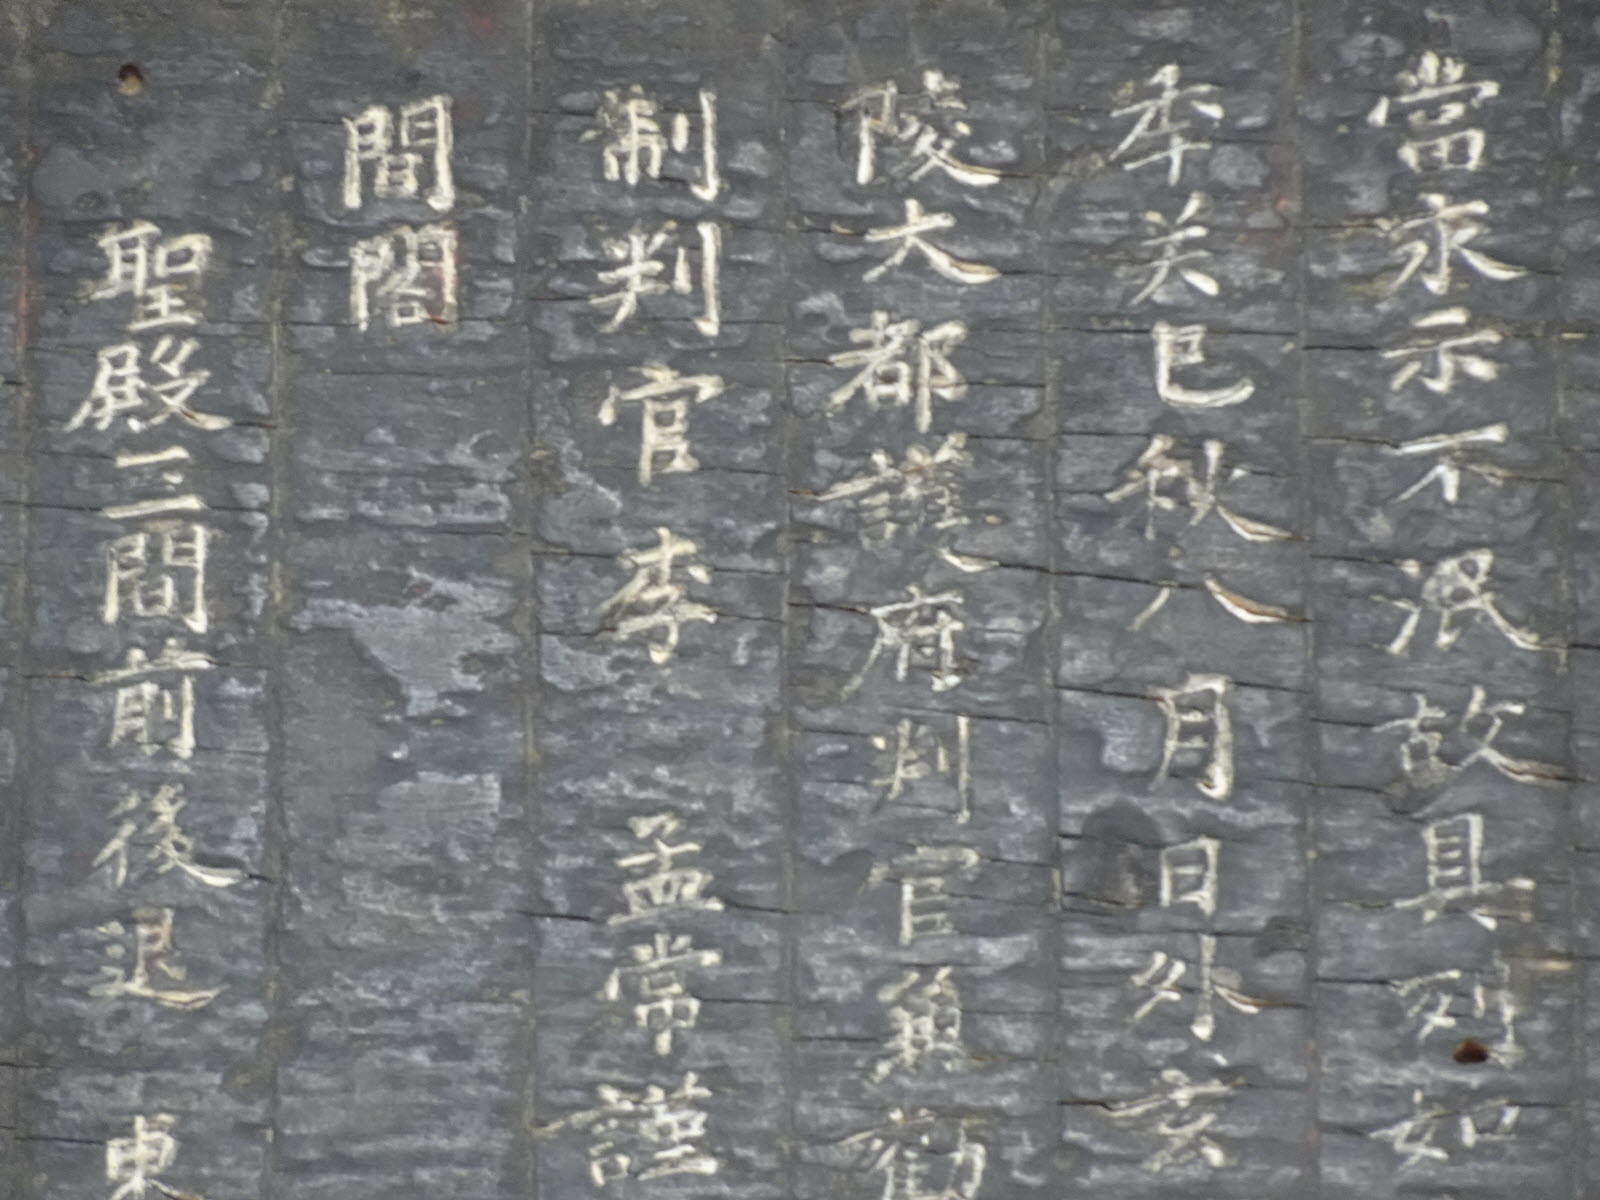 當永示不泯故具列如
年癸巳秋八月日外玄
陵大都護府判官兼勸
制判官李孟常謹
間閣
聖殿三間前後退東